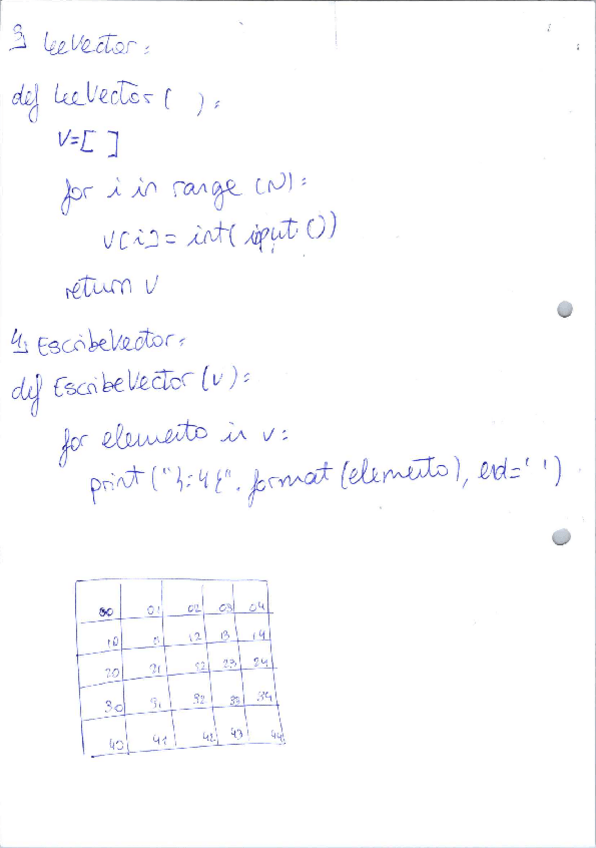 3) LeeVector:
def LeeVector( ):
v=[ ]
for i in range (N):
v[i]= int( input())
return v
4) EscribeVector:
def EscribeVector (v):
for elemento in v:
print ("{:4}". format (elemento), end=' ')
00 01 02 03 04
10 11 12 13 14
20 21 22 23 24
30 31 32 33 34
40 41 42 43 44